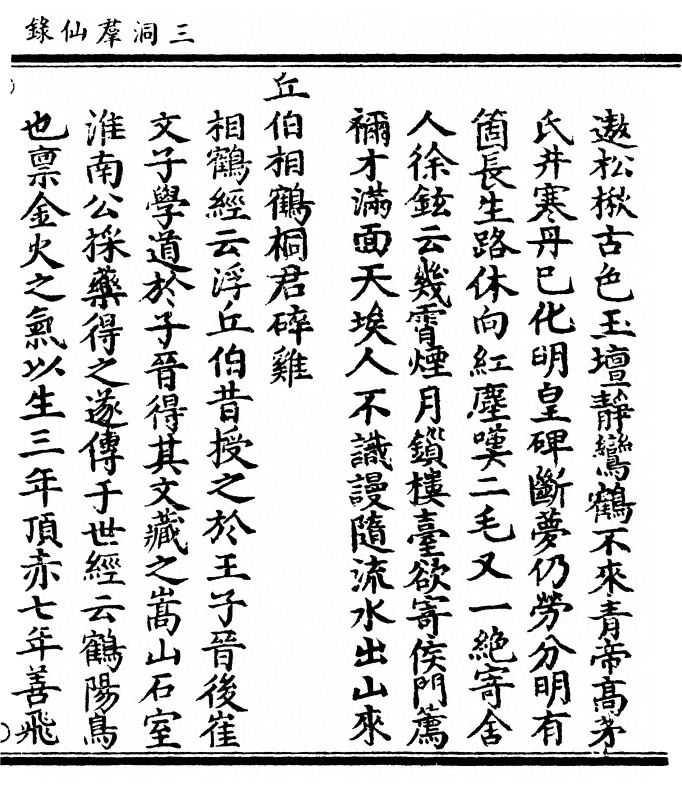 三洞羣仙錄
遨松揪古色玉壇靜鸞鶴不來青帝高茅
氏井寒丹已化明皇碑斷夢仍勞分明有
箇長生路休向紅塵嘆二毛又一絕寄舍
人徐鉉云幾宵煙月鎖樓臺欲寄侯門薦
禰才滿面天埃人不識謾隨流水出山來
丘伯相鶴桐君碎雞
相鶴經云浮丘伯昔授之於王子晉後崔
文子學道於子晉得其文藏之嵩山石室
淮南公採藥得之遂傳于世經云鶴陽鳥
也禀金火之氣以生三年頂赤七年善飛